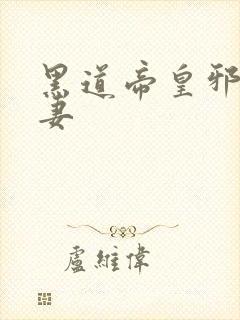 黑道帝皇邪
妻
盧維偉